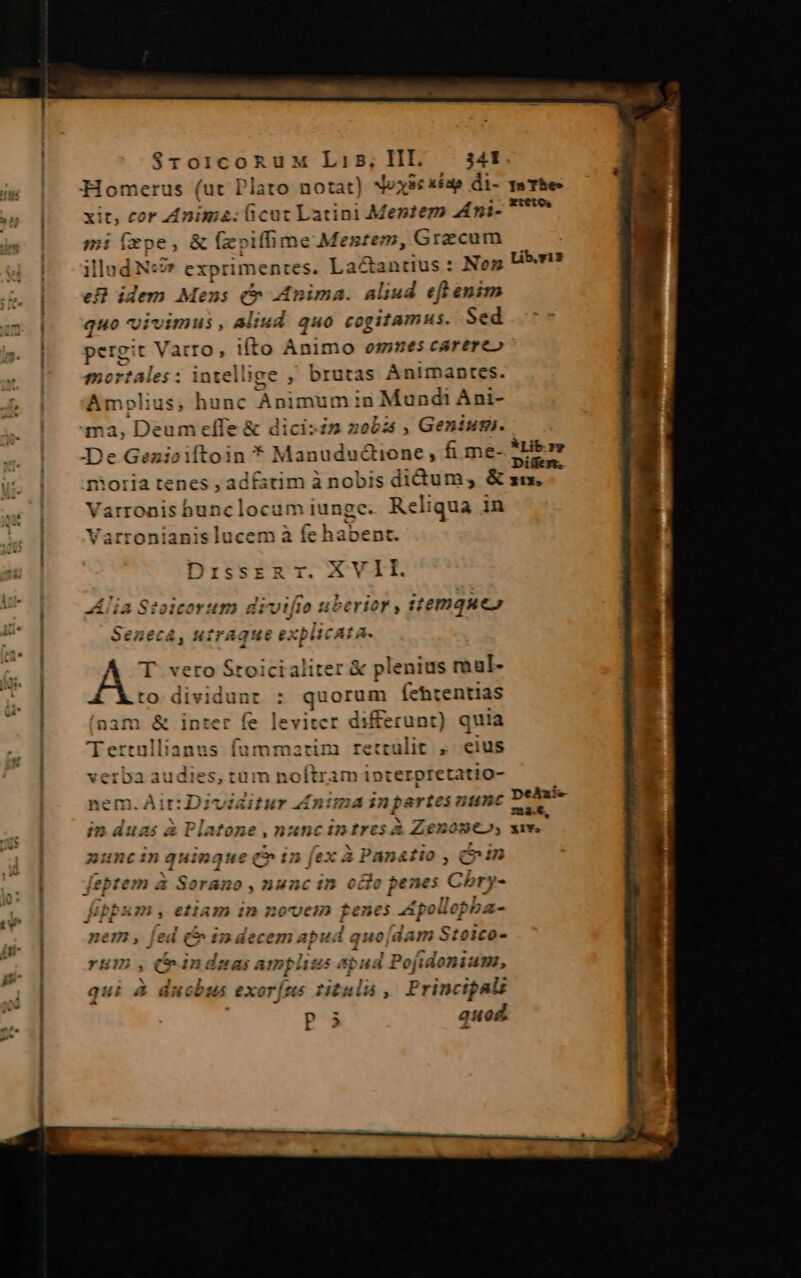 STOICORUM LIB, III. 341.
Homerus (ut Plato notat) ψυχῆς κέαρ di- In Thee-
xit, cor Animæ: ſicut Latini Mentem Ani- tetos
mi ſæpe, & ſæpiſſime Mentem, Græcum
illud Νοῦν exprimentes. Lactantius: Non Lib. VII
eſt idem Mens & Anima. aliud eſt enim
quo vivimus, aliud quo cogitamus. Sed
pergit Varro, iſto Animo omnes carere
mortales: intellige, brutas Animantes.
Amplius, hunc Animum in Mundi Ani-
ma, Deum eſſe & dici: in nobis, Genium.
De Genio iſto in * Manuductione, ſi me- *Lib. I
moria tenes, adfatim à nobis dictum, & Diſſert. XIX.
Varronis hunc locum iunge. Reliqua in
Varronianis lucem à ſe habent.
DISSERT. XVII.
Alia Stoicorum diviſio uberior, itemque
Seneca, utraque explicata.
AT vero Stoici aliter & plenius mul-
to dividunt : quorum ſentententias
(nam & inter ſe leviter differunt) quia
Tertullianus ſummatim rettulit, eius
verba audies, tum noſtram interpretatio-
nem. Ait: Dividitur Anima in partes nunc De Ani-
in duas à Platone, nunc in tres à Zenone, ma. c. XIV.
nunc in quinque & in ſex à Panætio, & in
ſeptem à Sorano, nunc in octo penes Chry-
ſippum, etiam in novem penes Apollopha-
nem, ſed & in decem apud quoſdam Stoico-
rum, & in duas amplius apud Poſidonium,
qui à duobus exorſus titulis, Principali
P 3 quod